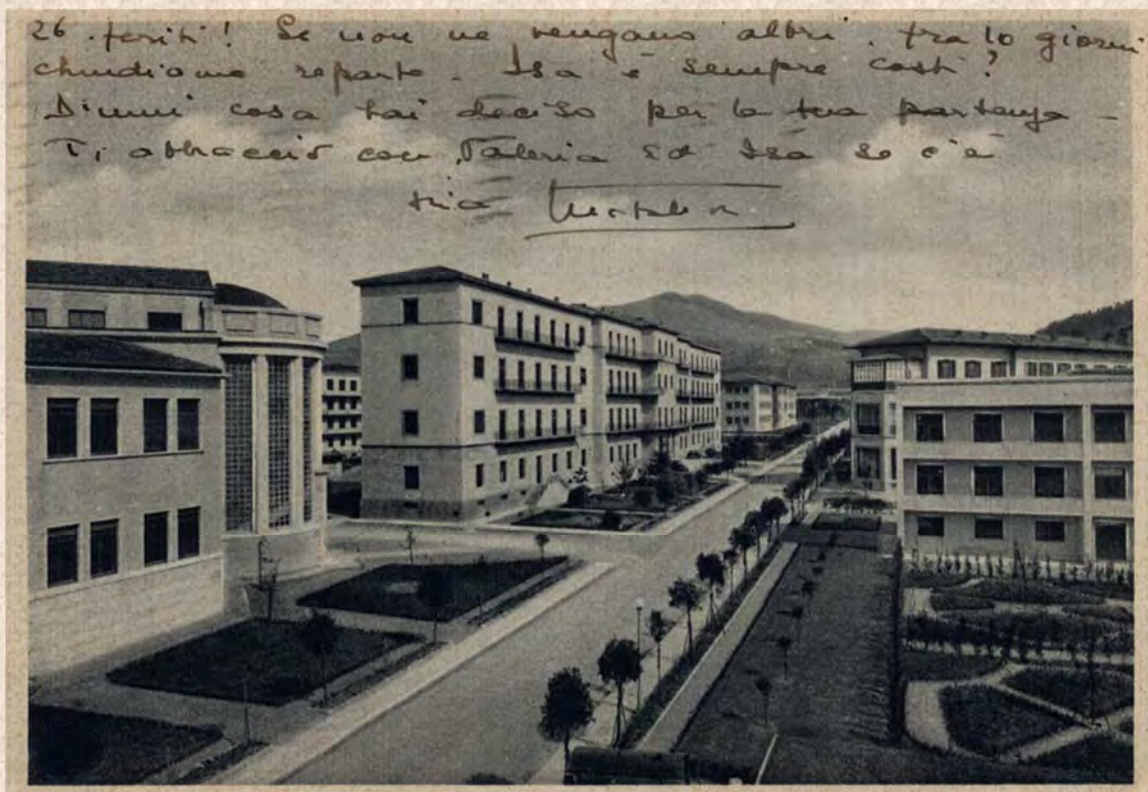 26 feriti! Se non ne vengano altri. fra 10 giorni
chiudiamo reparto. Isa è sempre costì?
Dimmi cosa hai deciso per la tua partenza -
Ti abbraccio con Valeria ed Isa se c'è
tua